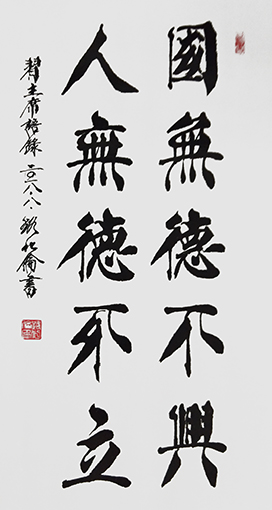 國無德不興
人無德不立
習主席語錄 二〇一八.八.
書